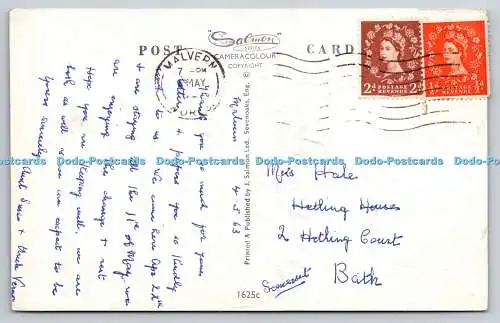 POST CARD
Salmon
SERIES
CAMERACOLOUR
COPYRIGHT
MALVERN
7 - PM
MAY
2d POSTAGE REVENUE 2d
½d POSTAGE REVENUE ½d
Malvern 4.5.63
Thank you so much for your
letter & papers you so kindly
sent to us. We came here Apr 28th
& are staying till the 11th of May we
are enjoying the change & rest
Hope you are keeping well, we are
both as well as we can expect to be
Yours sincerely
Printed & Published by J. Salmon Ltd., Sevenoaks, Eng.
1625c
Miss Hale
Hetling House
2 Hetling Court
Bath
Somerset
Dodo-Postcards Dodo-Postcards Dodo-Postcards Dodo-Postcards Dodo-Postcards Dodo-Postcards